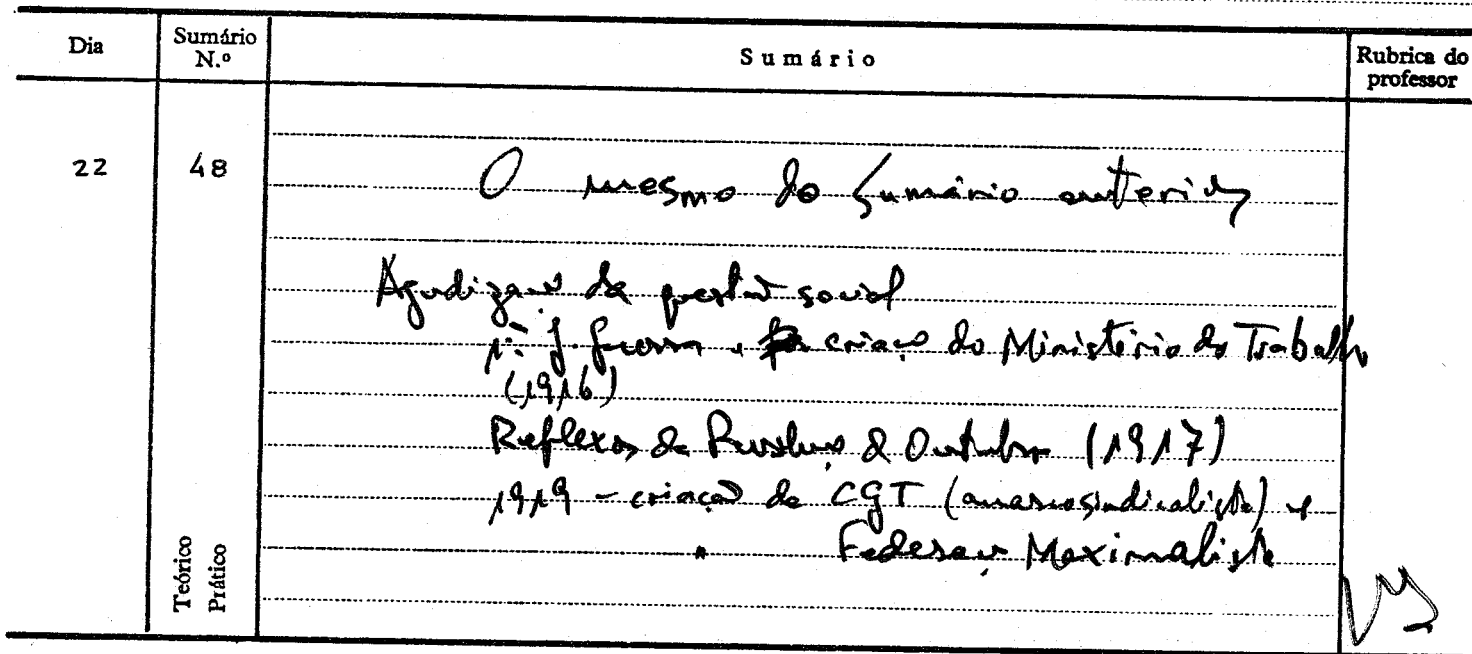 Dia Sumário N.º Sumário Rubrica do professor
22 48 O mesmo do Sumário anterior
Agudização da questão social
1.ª g. guerra e criação do Ministério do Trabalho
(1916)
Reflexos da Revolução d Outubro (1917)
1919 - criação da CGT (anarcosindicalista) e
" Federação Maximalista
Teórico
Prático